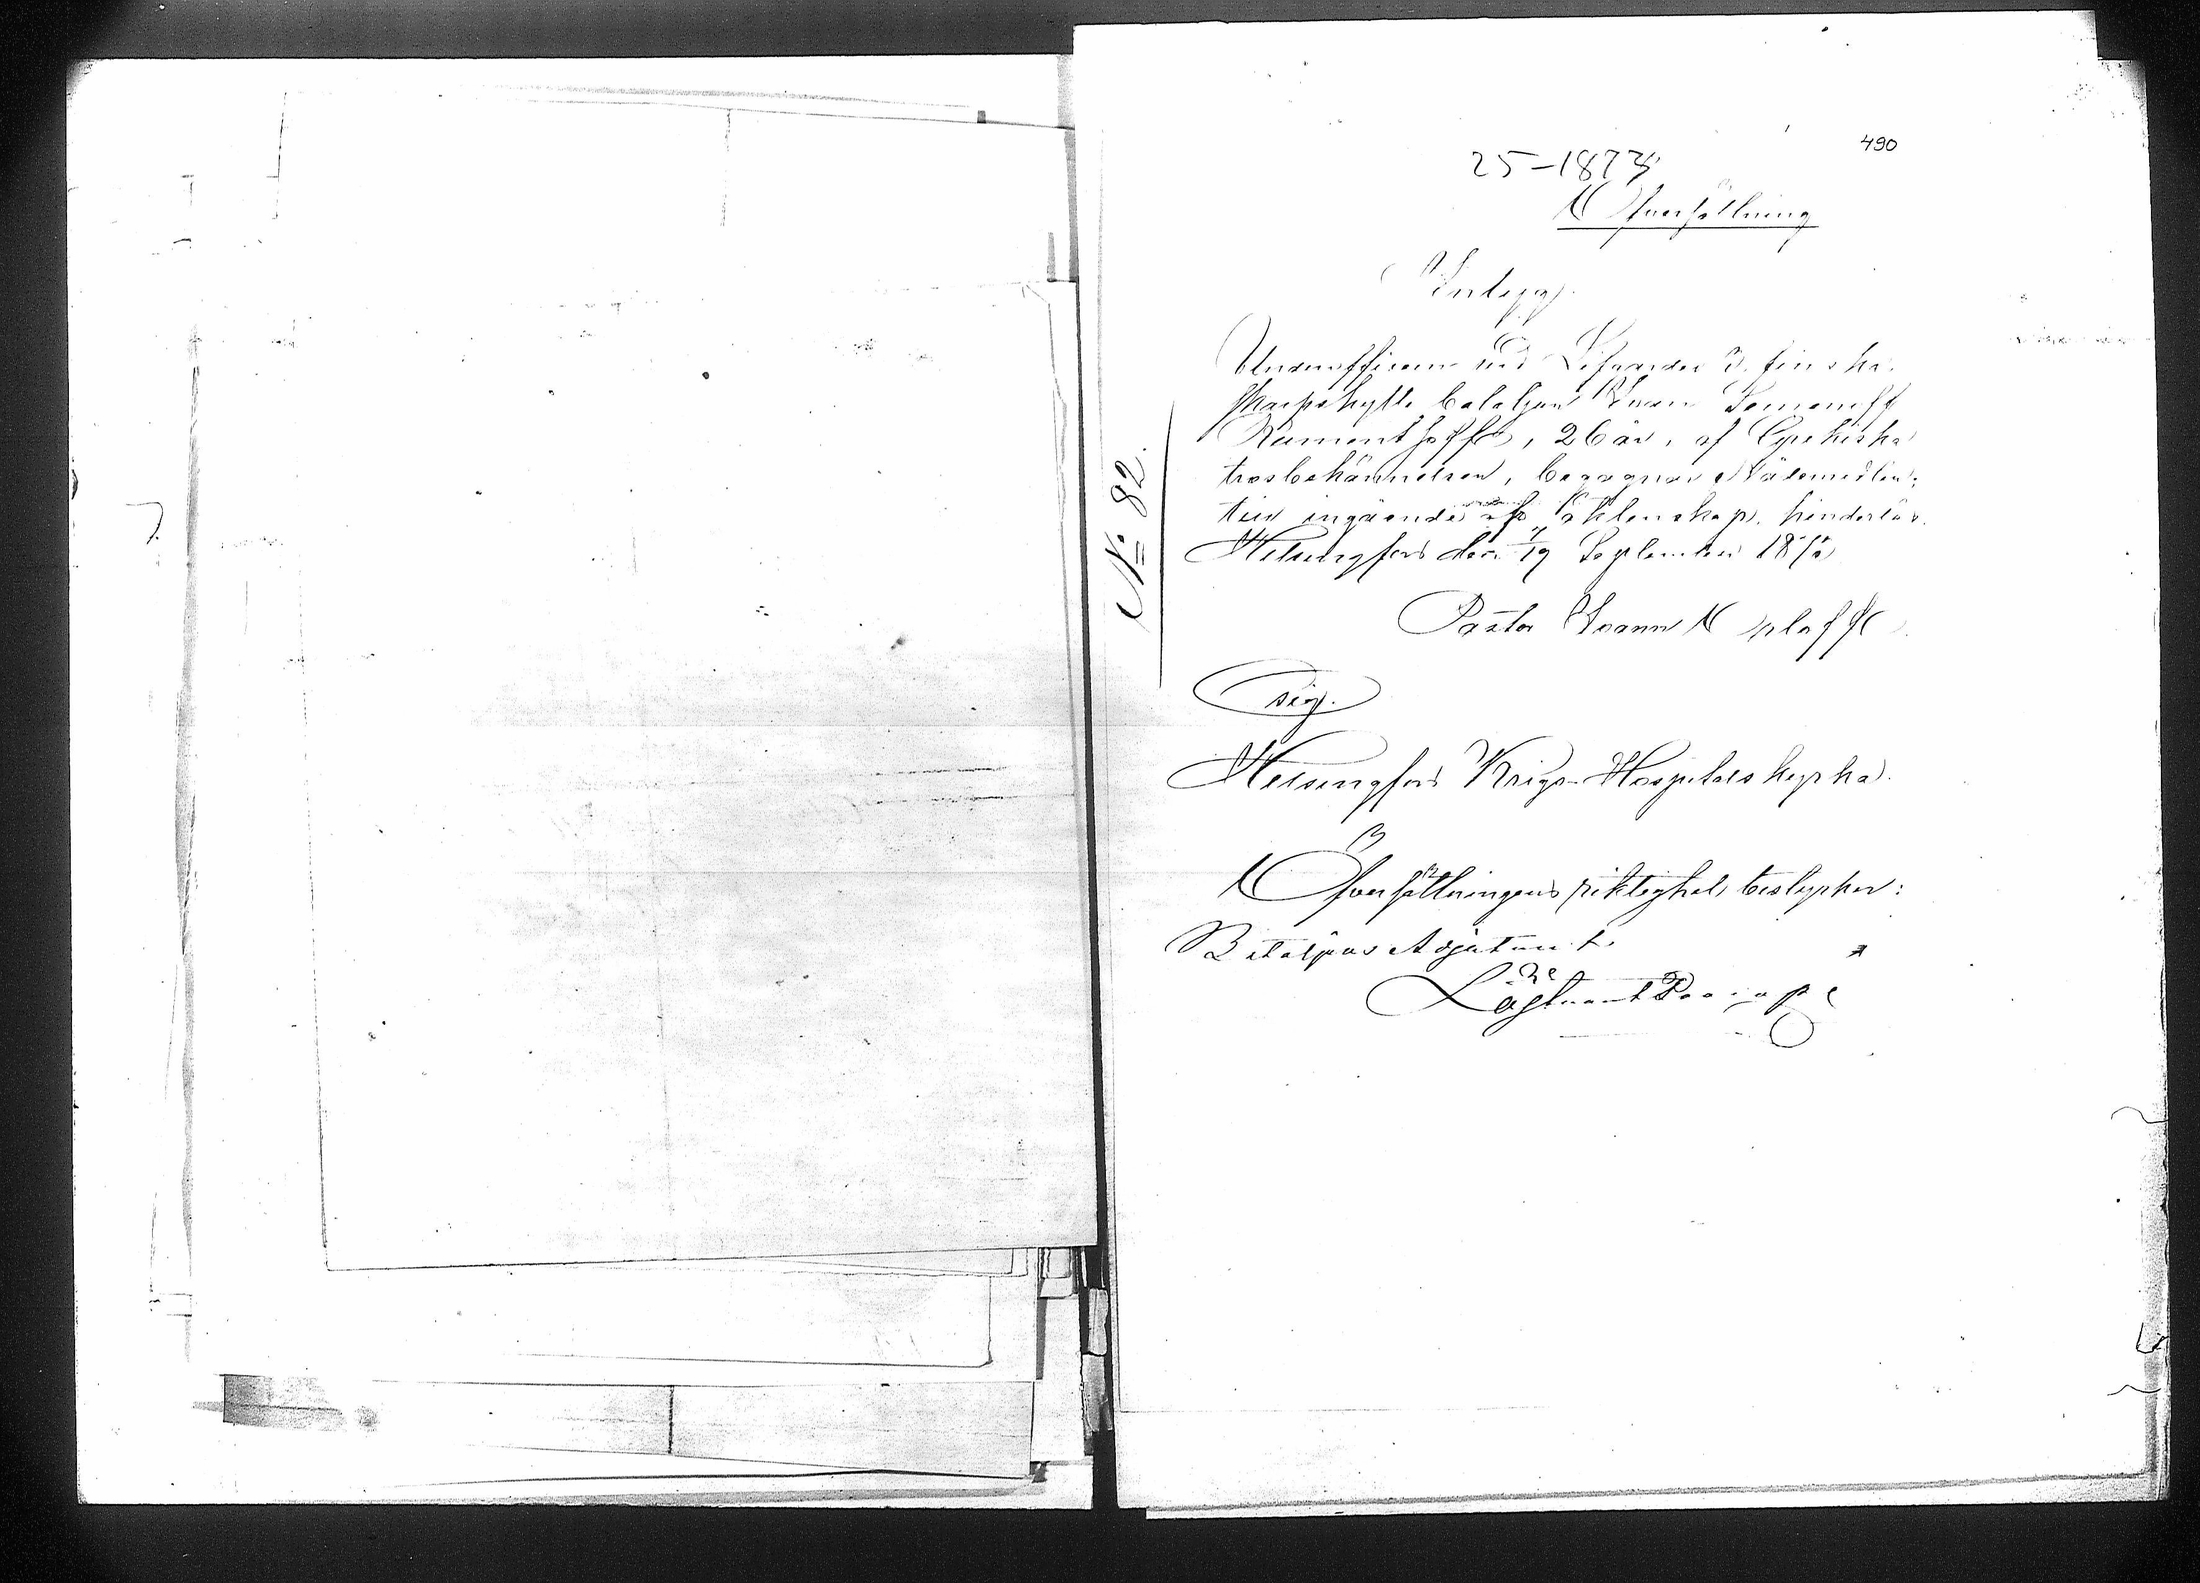 490
25-1873
Öfversättning
Intyg.
Underofficeren vid Lifgardes 3. finska
skarpskytte bataljon Ivan Semenoff
26 år, af Grekiska
trosbekännelsen, begagnar Nådemedlen;
ingående af äktenskap, hinderlös.
Helsingfors den 19 September 187
Pastor Ioann
sig.
Helsingfors Krigs-Hospitals kyrka.
Öfversättningens riktighet, bestyrker:
Bataljons Adjutant
Löjtnant
No 82.